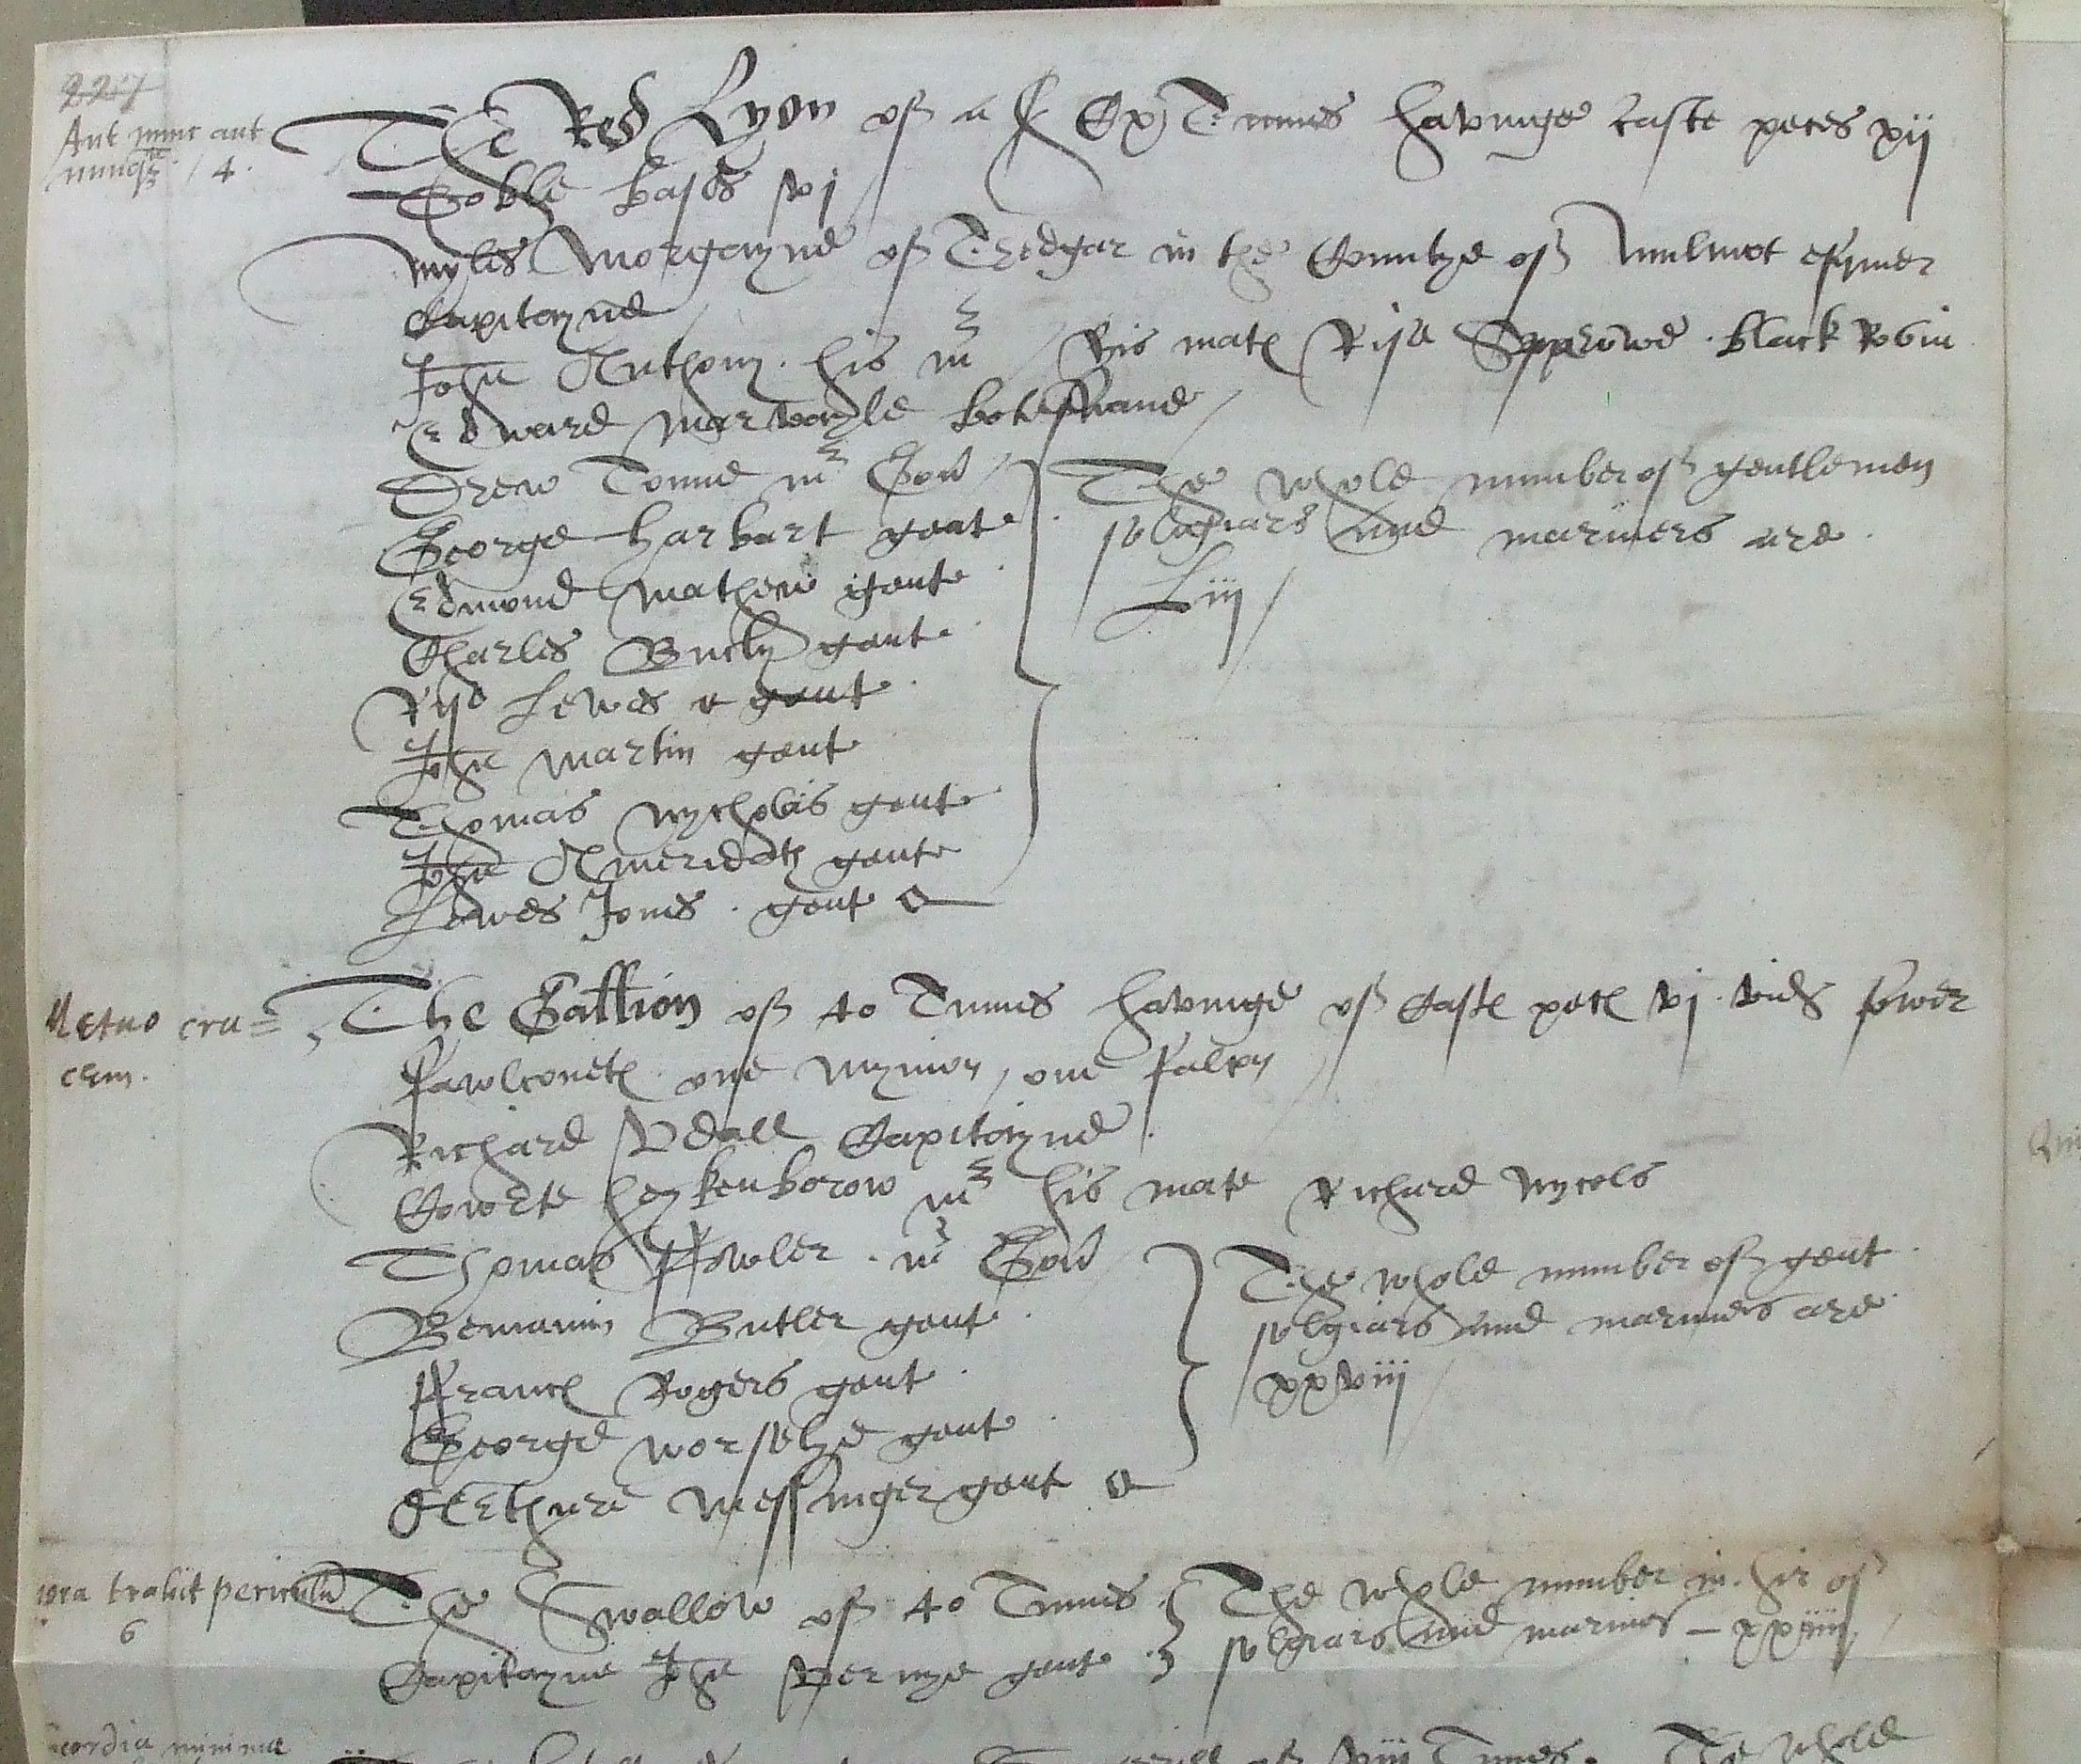 Aut nunc aut
nunq̃ 4.
The Red Lyon of a C & x Tunnes havinge caste peces xij
Doble bases vj
Myles Morgayne of Tredgar in the Countye of esquier
Capitayne
John Anthony his mr his mate Ryse Sparowe black Robin
Edward Marvayle boteswane
Drew Tonne mr Gon
George Harbart gent
Edmond Mathew gent
Charles Bucly gent
Ryse Lewes gent
John Martin gent
Thomas Nycholas gent
John Amerideth gent
Lewes Jones gent
The whole number of gentlemen
solgiars and mariners are
Liij
Metuo cru=
cem.
The Gallion of 40 Tunnes havinge of Caste peces vj vids fower
fawlconetes one Mynion, one falcon
Richard Vdall Capitayne
Cowrte heykenborow mr his mate Richard Nycols
Thomas Fowler mr Gon
Beniamin Butler gent
Frances Rogers gent
George worselye gent
Arthure Messinger gent
The whole number of gent
solgiars and mariners are
xxviij
ora trahit periculũ
6
The Swallow of 40 Tunnes
Capitayne John Vernye gent
The whole number in hir of
solgiars and mariners – xxiiij
cordia minimæ
of viij Tunnes. The whole